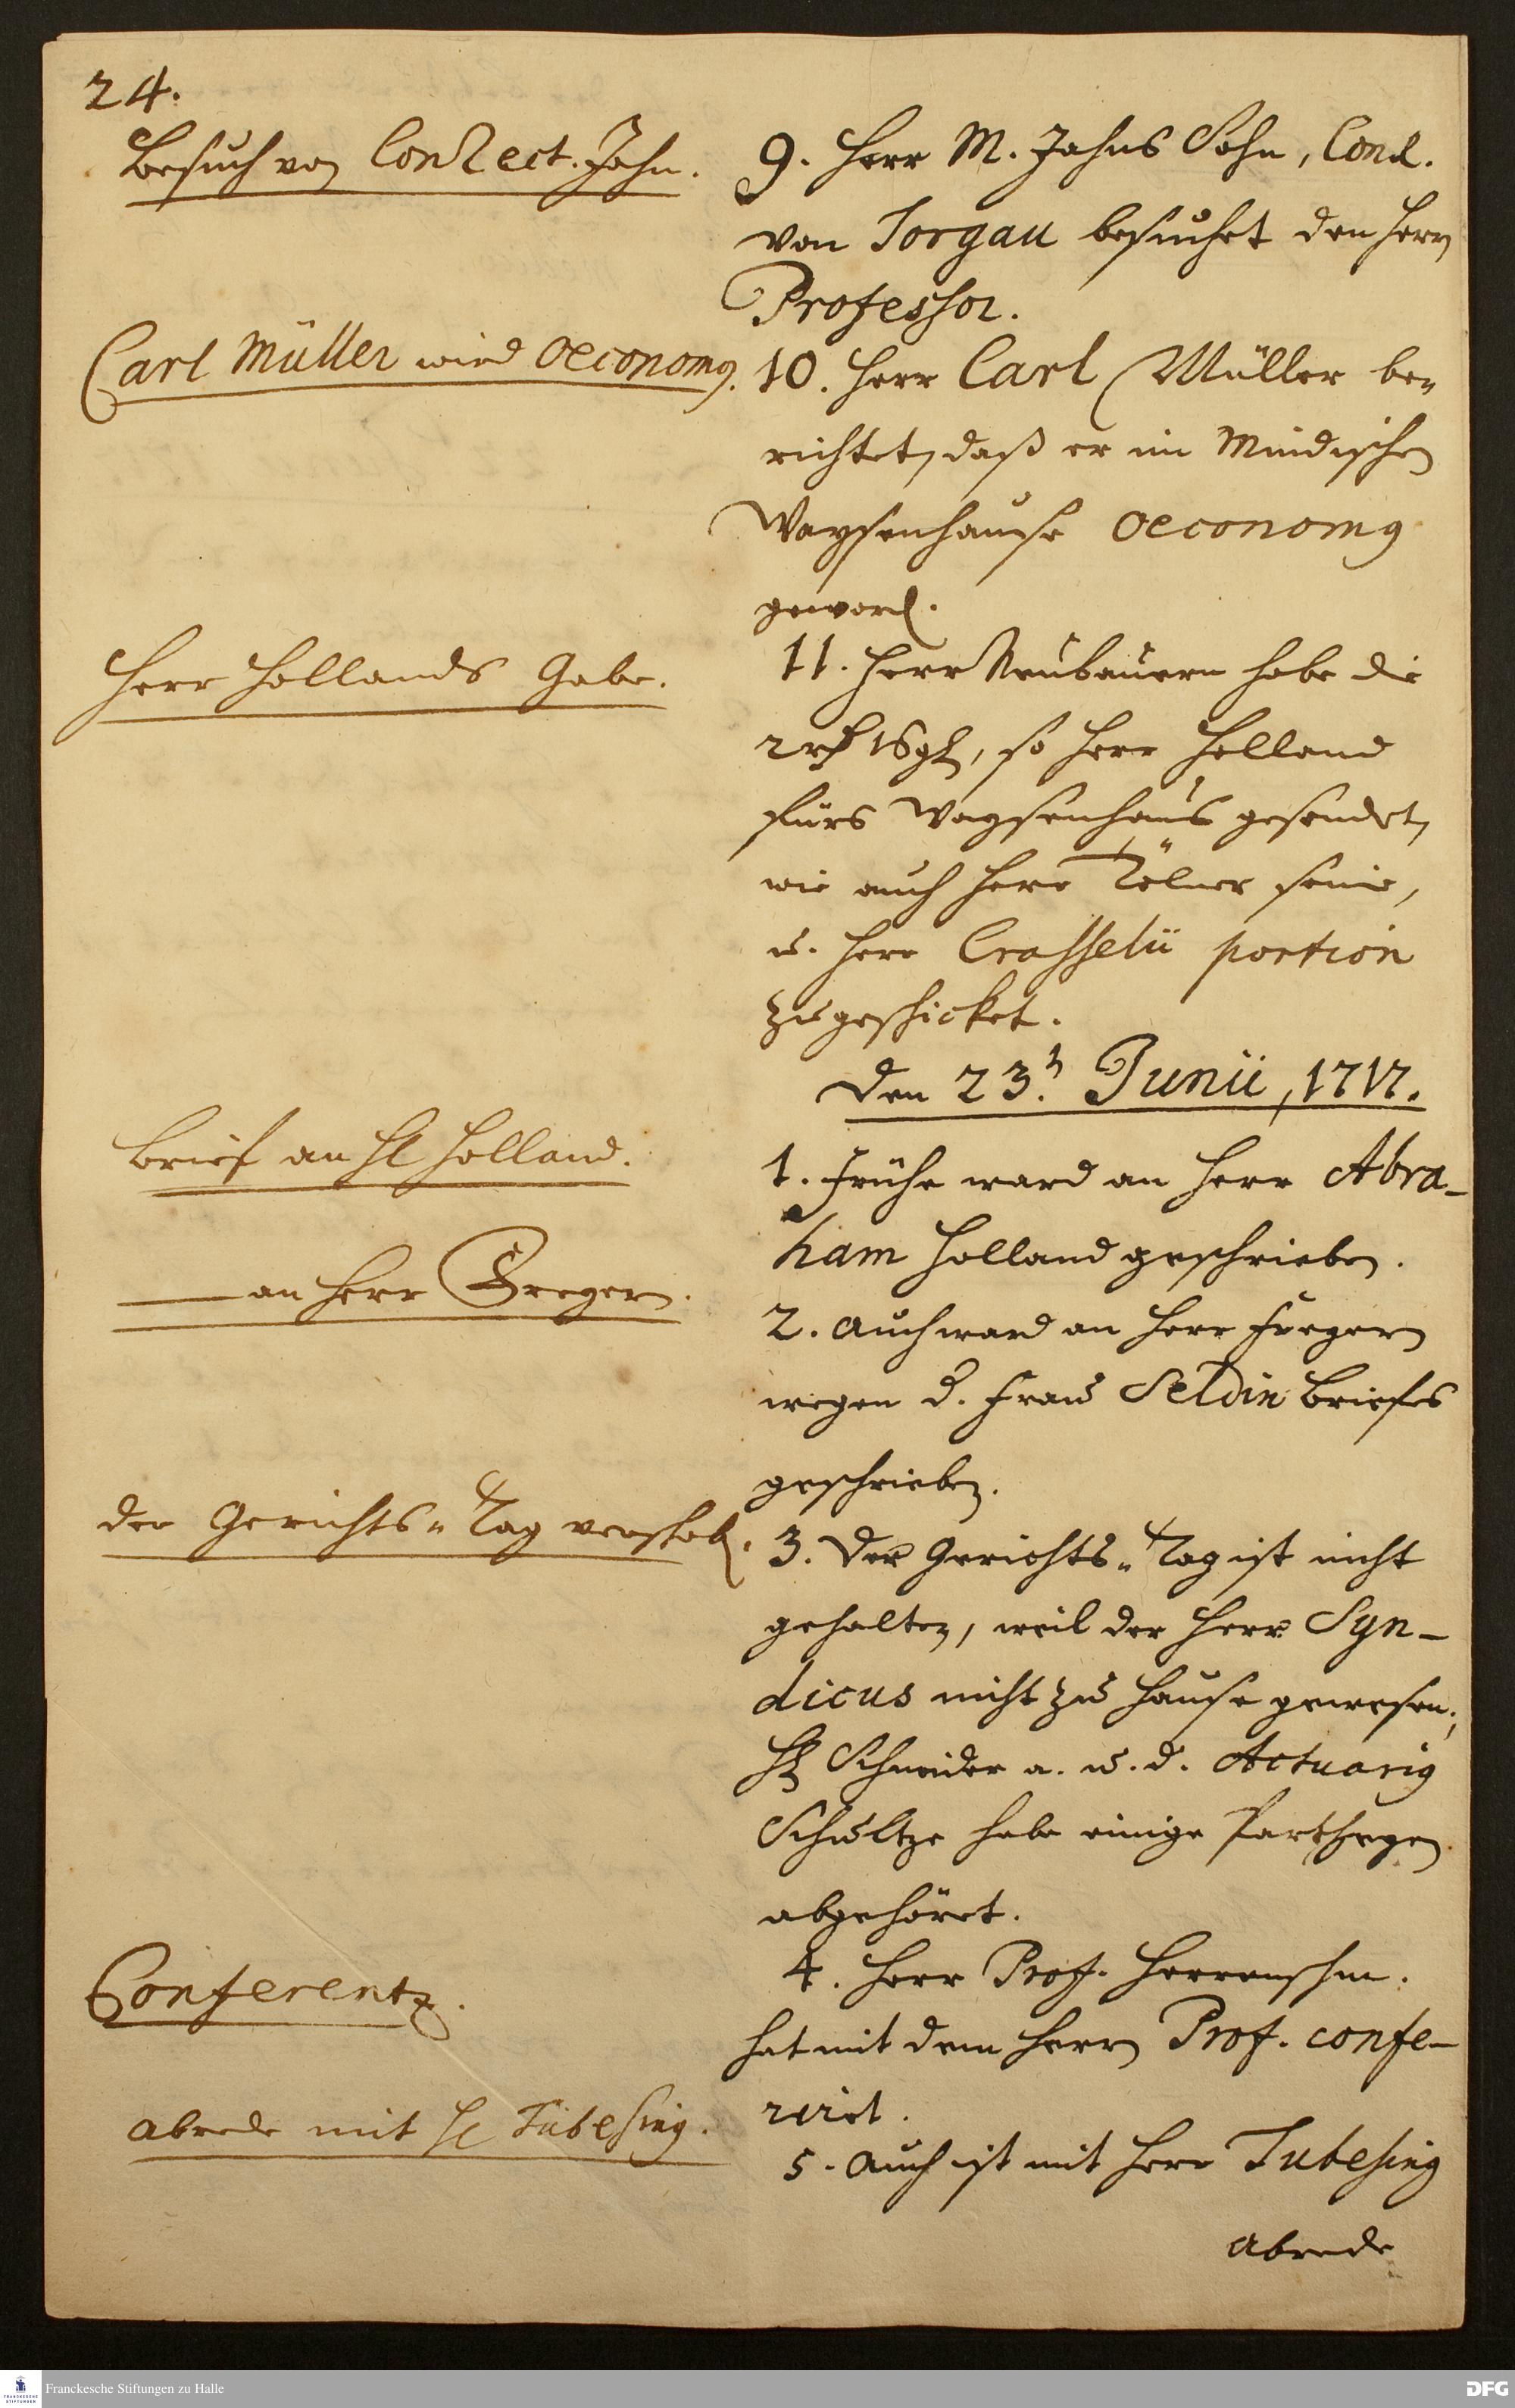 24.
Besuch von ConRect. Jahn.
9. Herr M. Jahns Sohn, ConR.
von Torgau besuchet den Herrn
Professor.
Carl Müller wird Oeconomus.
10. Herr Carl Müller be-
richtet, daß er im Mindischen
Waysenhause Oeconomus
geword.
Herr Hollands Gabe.
11. Herr Neubauern habe die
2 rth 16 gl, so Herr Holland
fürs Waysenhaus gesendet,
wie auch Herr Tölner seine,
u. Herr Crasselii portion
zugeschicket.
Den 23.t Junii, 1717.
Brief an H. Holland.
1. Frühe ward an Herr Abra-
ham Holland geschrieben.
— an Herr Gregern.
2. Auch ward an Herr
wegen d. Frau Seldin Briefes
geschrieben.
der Gerichts-Tag verschob.
3. Der Gerichts-Tag ist nicht
gehalten, weil der Herr Syn-
dicus nicht zu Hause gewesen;
H. Schneider a. u. d. Actuarius
Schultze habe einige Partheyen
abgehöret.
Conferentz.
4. Herr Prof. Herrenschm.
hat mit dem Herrn Prof. confe-
riret.
Abrede mit H. Tübesing.
5. Auch ist mit Herr Tubesing
Abrede
Franckesche Stiftungen zu Halle
FRANCKESCHE STIFTUNGEN
DFG